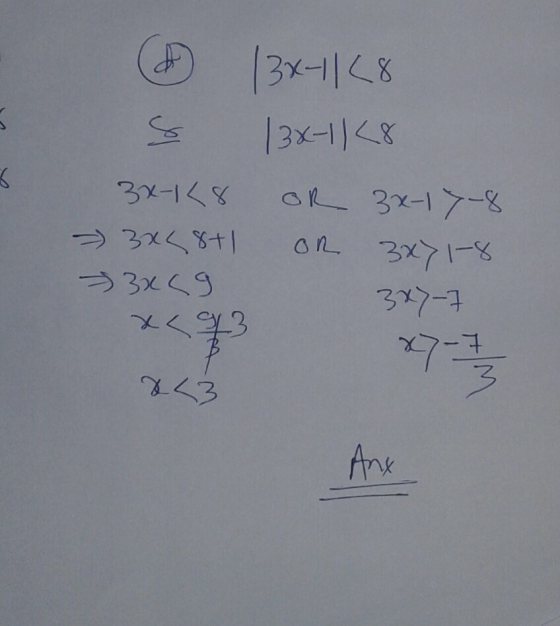 (d) |3x-1|<8
S |3x-1|<8
3x-1<8 OR 3x-1>-8
⇒ 3x<8+1 OR 3x>1-8
⇒ 3x<9 3x>-7
x<9/3 3 x>-7/3
x<3
Ans